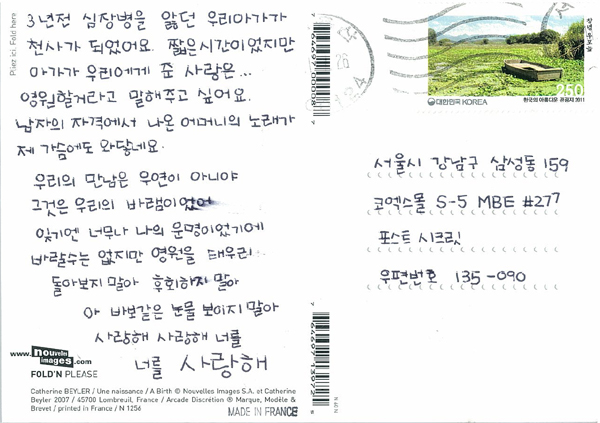 Pliez ici. Fold here
3년전 심장병을 앓던 우리아가가
천사가 되었어요. 짧은시간이었지만
아가가 우리에게 준 사랑은...
영원할거라고 말해주고 싶어요.
남자의 자격에서 나온 어머니의 노래가
제 가슴에도 와닿네요.
우리의 만남은 우연이 아니야
그것은 우리의 바램이었어
잊기엔 너무나 나의 운명이었기에
바랄수는 없지만 영원을 태우리
돌아보지 말아 후회하지 말아
아 바보같은 눈물 보이지 말아
사랑해 사랑해 너를
너를 사랑해
www.nouvelles
images.com
FOLD'N PLEASE
Catherine BEYLER / Une naissance / A Birth © Nouvelles Images S.A. et Catherine
Beyler 2007 / 45700 Lombreuil, France / Arcade Discrétion ® Marque, Modèle &
Brevet / printed in France / N 1256
MADE IN FRANCE
대한민국 KOREA
한국의 아름다운 관광지 2011
250
서울시 강남구 삼성동 159
코엑스몰 S-5 MBE #277
포스트 시크릿
우편번호 135-090